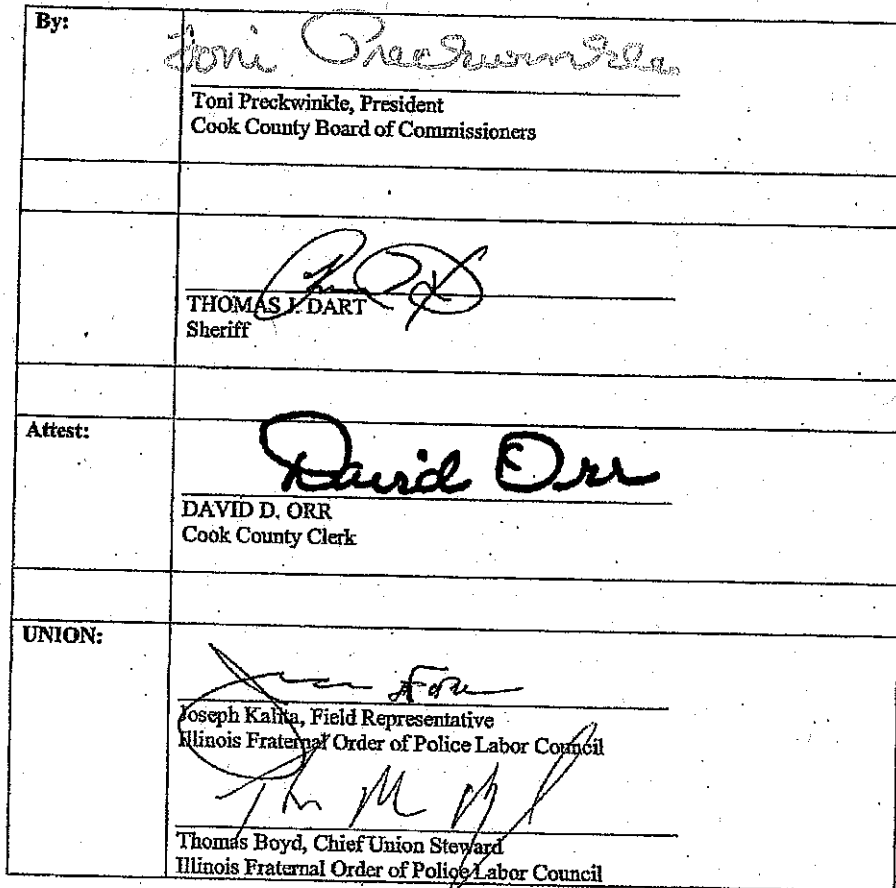 By:
Toni Preckwinkle
Toni Preckwinkle, President
Cook County Board of Commissioners
THOMAS J. DART
Sheriff
Attest:
David Orr
DAVID D. ORR
Cook County Clerk
UNION:
Joseph Kalita, Field Representative
Illinois Fraternal Order of Police Labor Council
Thomas Boyd, Chief Union Steward
Illinois Fraternal Order of Police Labor Council